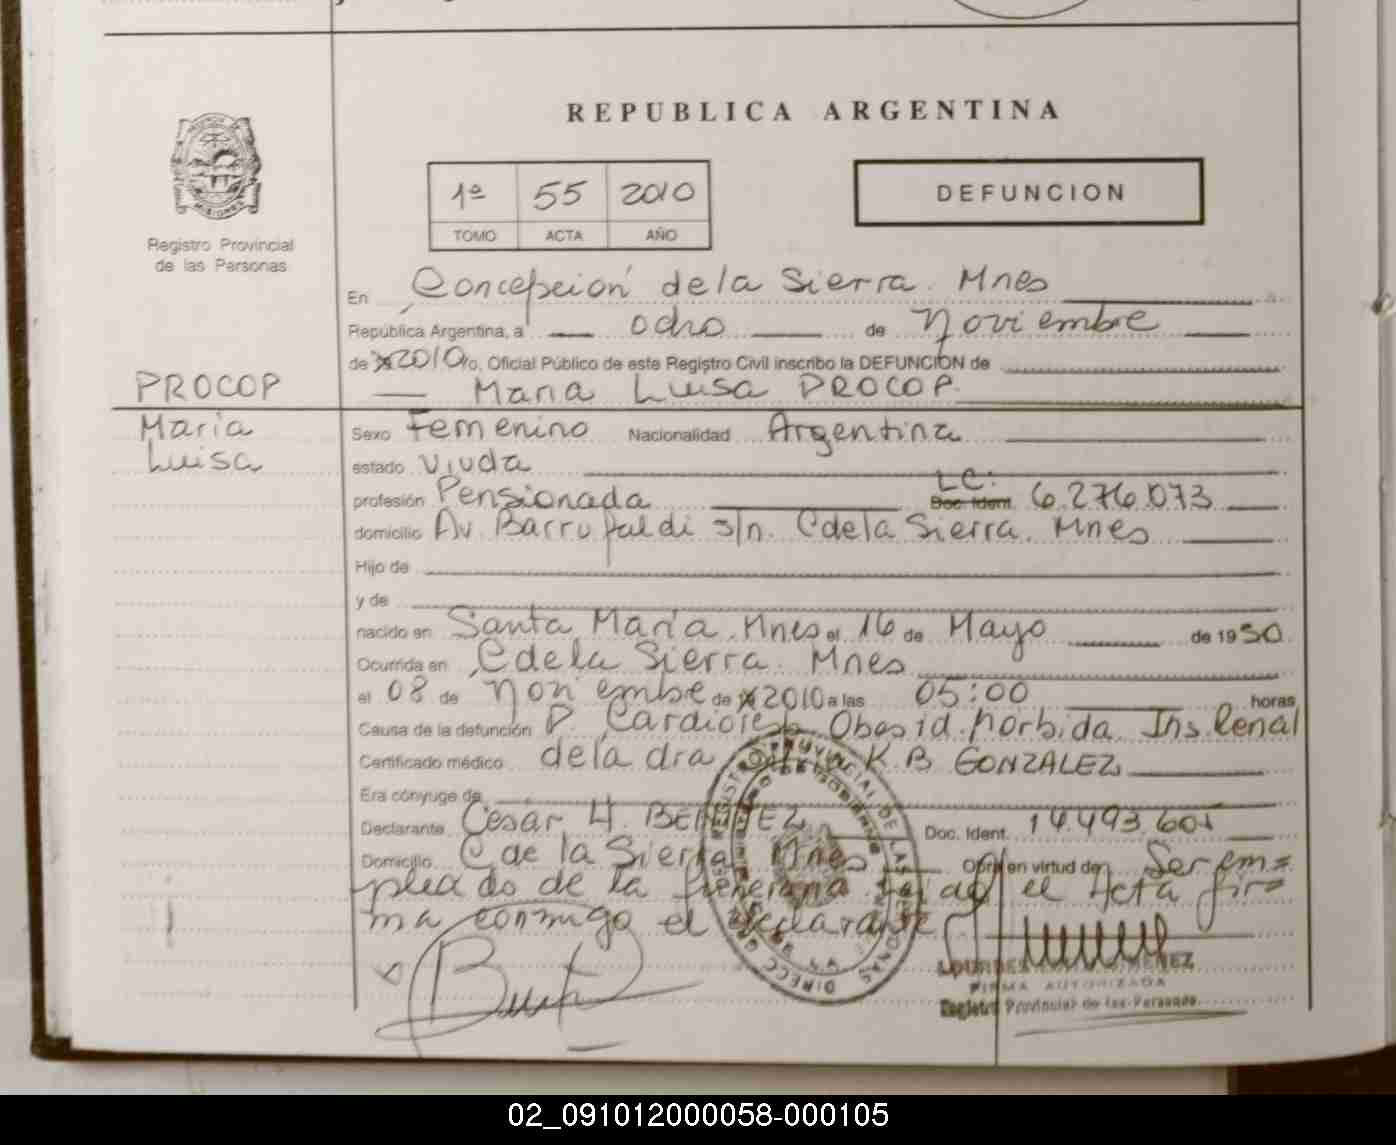 REPUBLICA ARGENTINA
1ª 55 2010
TOMO ACTA AÑO
DEFUNCION
Registro Provincial
de las Personas
En Concepción de la Sierra. Mnes
República Argentina, a ocho de Noviembre
de 2010 yo, Oficial Público de este Registro Civil inscribo la DEFUNCION de
PROCOP
Maria Luisa PROCOP.
Maria
Luisa
Sexo Femenino Nacionalidad Argentina
estado Viuda
profesión Pensionada LC: Doc. Ident. 6.276.073
domicilio Av. Barrufaldi s/n. C de la Sierra. Mnes
Hijo de
y de
nacido en Santa María. Mnes el 16 de Mayo de 1950
Ocurrida en C de la Sierra. Mnes
el 08 de Noviembe de 2010 a las 05:00 horas
Causa de la defunción P. Cardioresp Obesid. Morbida. Ins. Renal
Certificado médico de la dra K. B GONZALEZ
Era cónyuge de
Declarante Cesar H. BENITEZ Doc. Ident. 14.493.605
Domicilio C de la Sierra Mnes Obra en virtud de Ser em=
pleado de la el Acta fir=
ma conmigo el declarante
LOURDES
FIRMA AUTORIZADA
Registro Provincial de las Personas
02_091012000058-000105